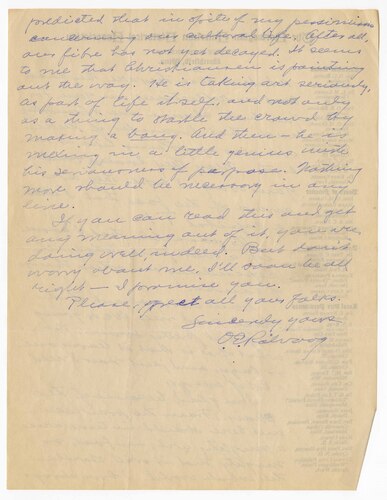 predicted that in spite of my pessimism
concerning our cultural life. After all,
our fibre has not yet decayed. It seems
to me that Christiansen is pointing
out the way. He is taking art seriously,
as part of life itself, and not only
as a thing to startle the crowd by
making a bang. And then – he is
mixing in a little genius with
his seriousness of purpose. Nothing
more should be necessary in any
line.
If you can read this and get
any meaning out of it, you are
doing well indeed. But don't
worry about me. I'll soon be all
right – I promise you.
Please, greet all your folks.
Sincerely yours
O E Rölvaag